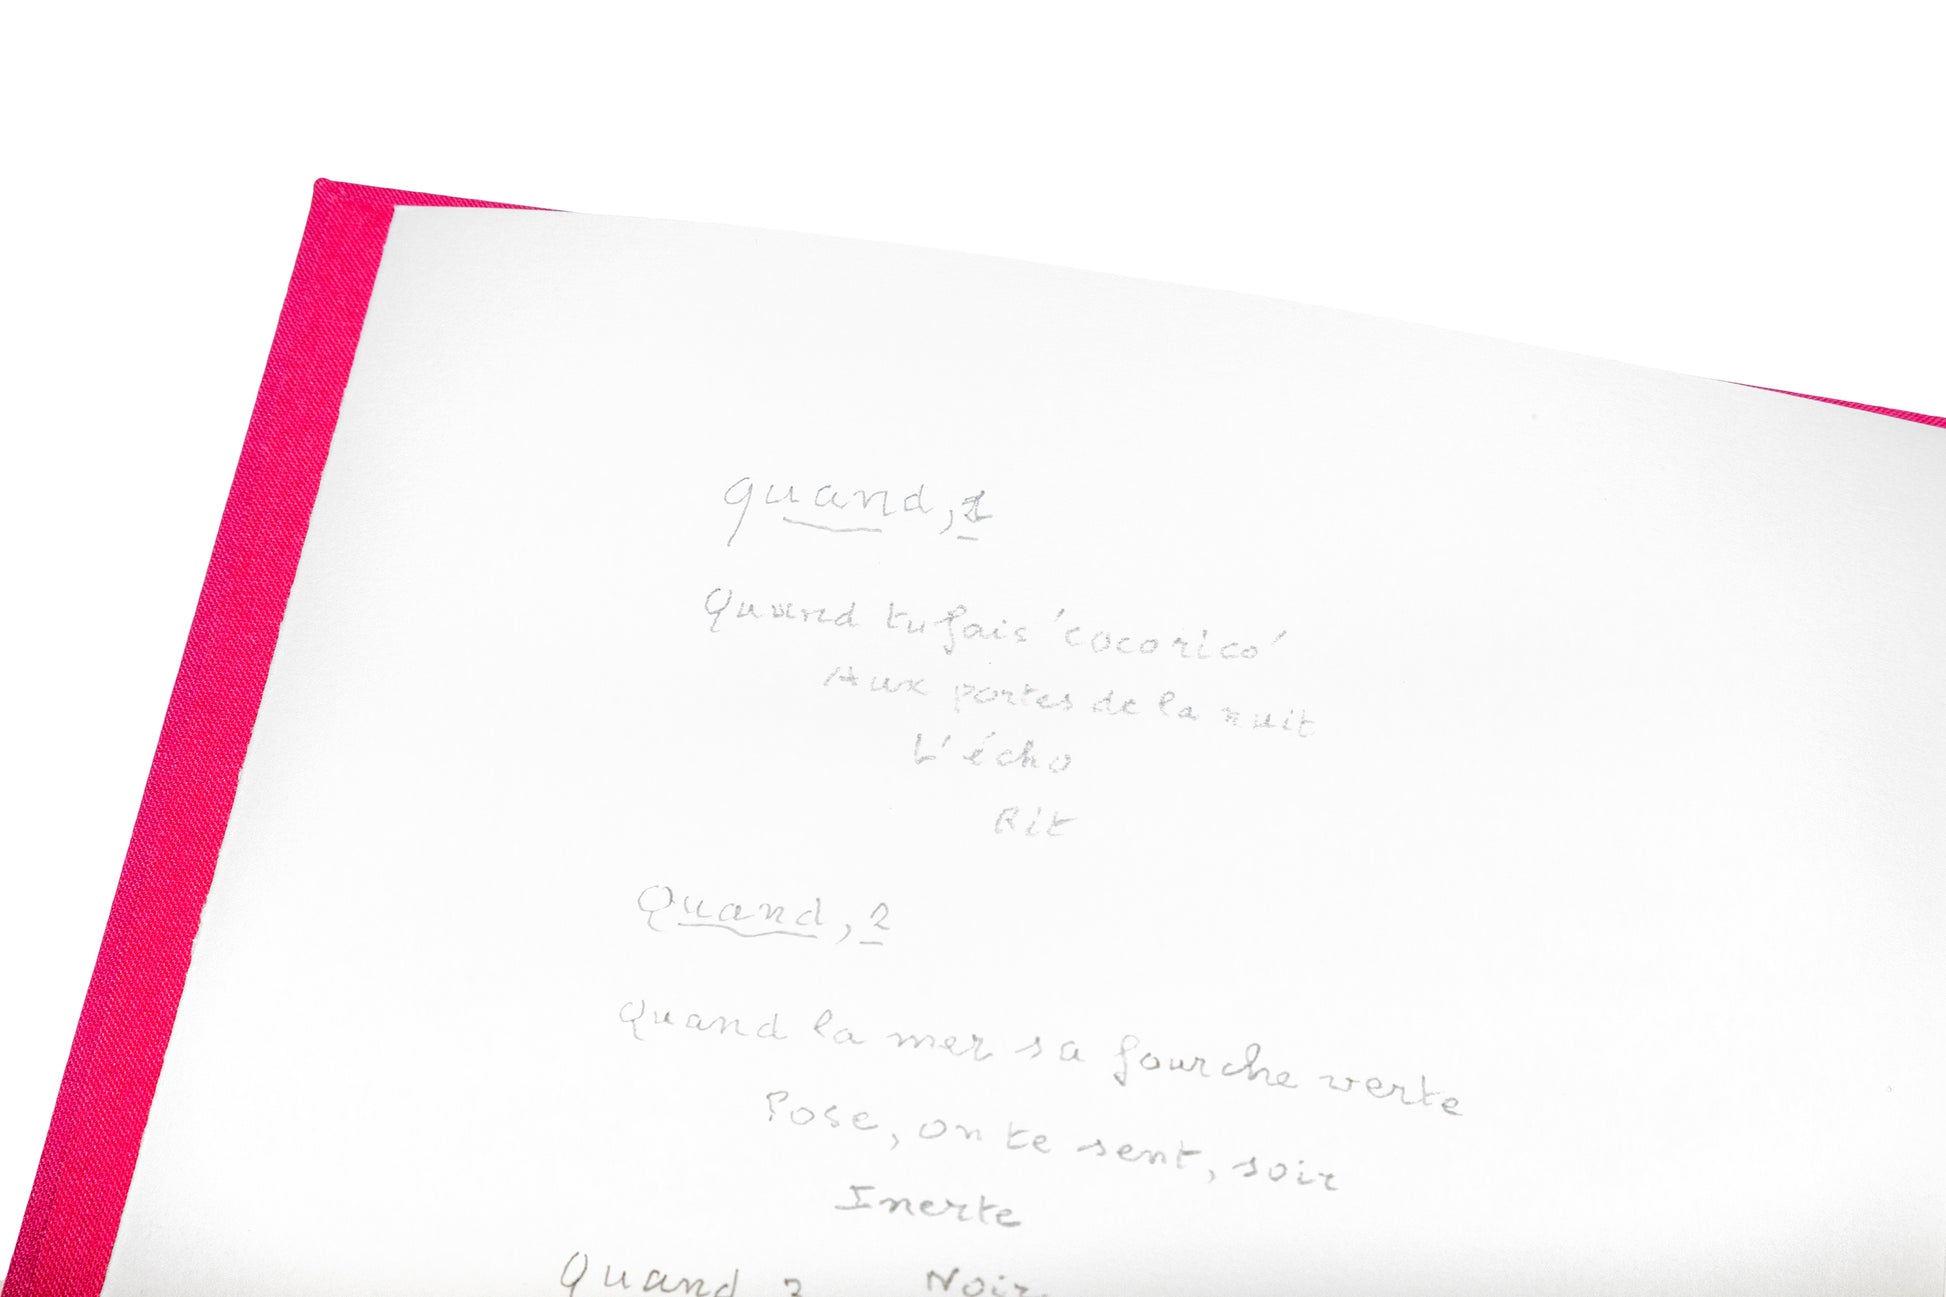 quand, 1
Quand tu fais 'cocorico'
Aux portes de la nuit
L'écho
Rit
Quand, 2
Quand la mer sa fourche verte
Pose, on te sent, soir
Inerte
Noir
Quand, 3